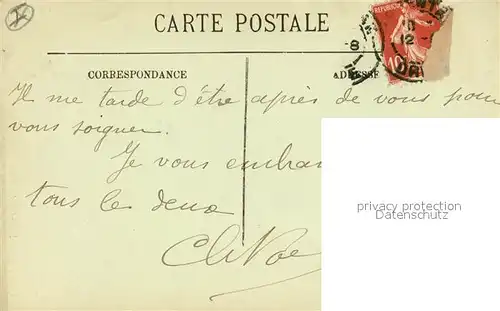 CARTE POSTALE
CORRESPONDANCE
ADRESSE
Il me tarde d'être après de vous pour
vous soigner.
Je vous embras
tous les deux
privacy protection
Datenschutz